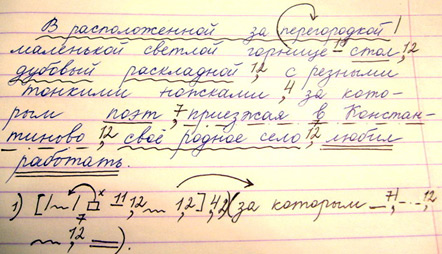 В расположенной за перегородкой |
маленькой светлой горнице – стол, 12
дубовый раскладной 12, с резными
тонкими ножками, 4 за кото-
рым поэт, 7 приезжая в Констан-
тиново, 12 своё родное село, 12 любил
работать.
1) [ | | 7 х 11, 12, 1, 2, ], 4, 2, (за которым – 7 | , 12
, 12 ).